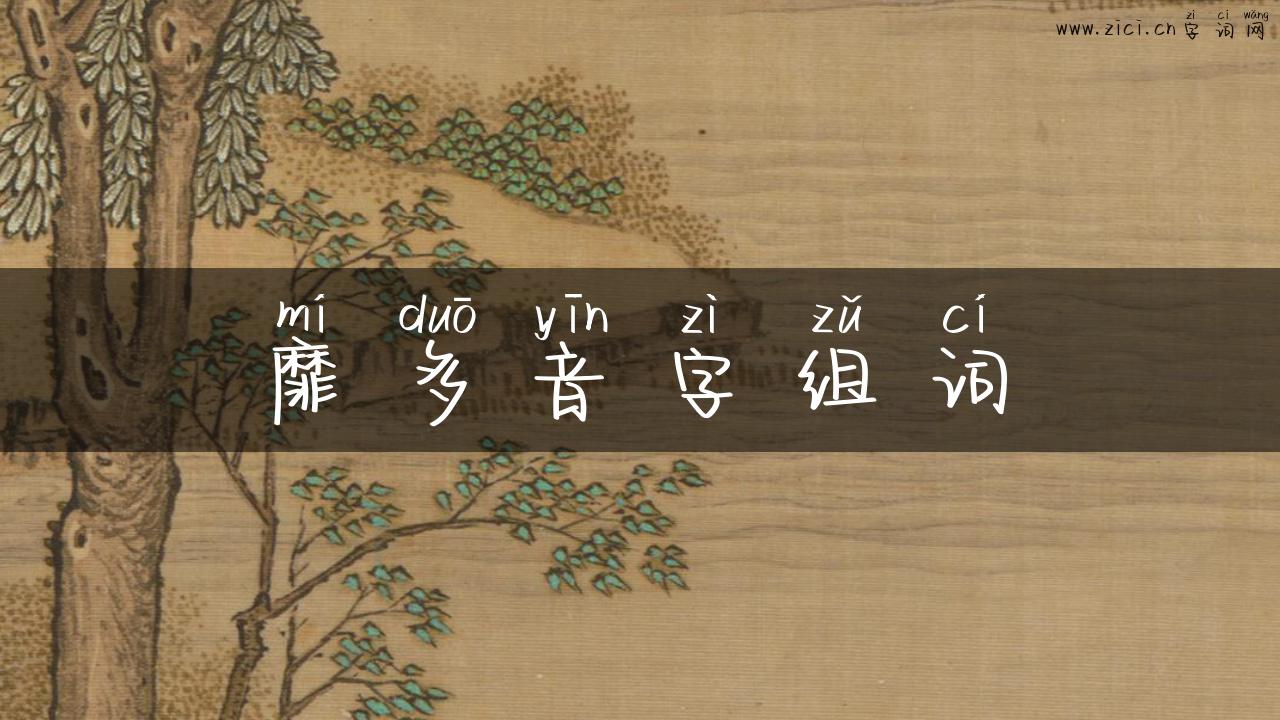 zì cí wǎng
www.zici.cn 字词网
mí duō yīn zì zǔ cí
靡多音字组词